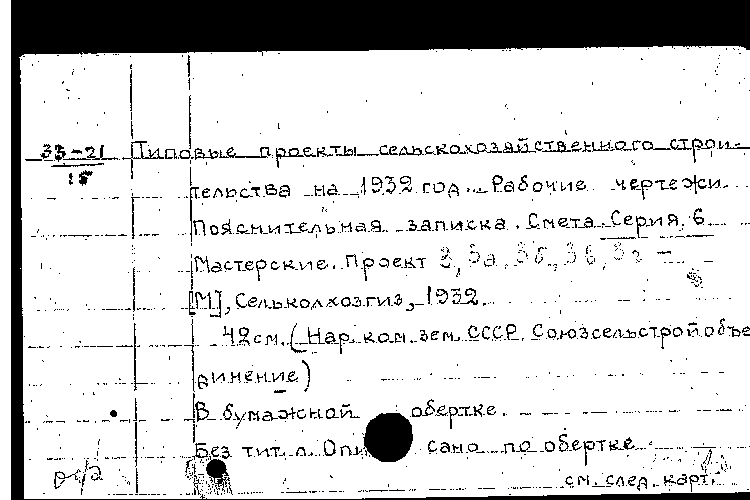 33-21 Типовые проекты сельскохозяйственного строи-
15
тельства на 1932 год. Рабочие чертежи.
Пояснительная записка. Смета. Серия 6
Мастерские. Проект 3, 3а, 3б, 3в, 3г –
[М], Сельколхозгиз, 1932.
42см. (Нар. ком. зем. СССР. Союзсельстройобъе
динение)
В бумажной обертке.
Без тит. л. Описано по обертке.
см. след. карт.